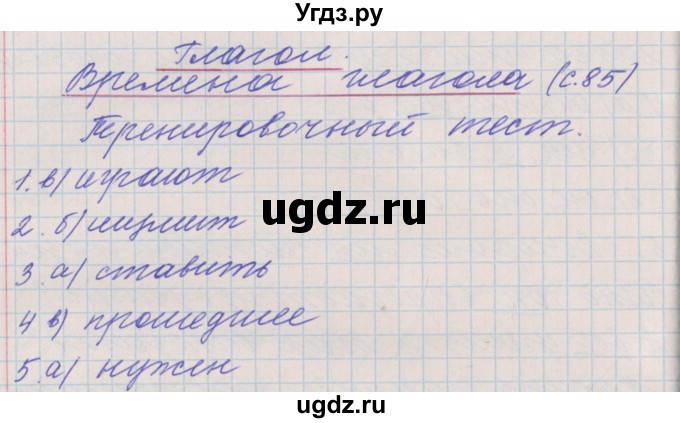 Угдз.ру
Глагол.
Времена глагола (с.85)
Тренировочный тест.
1. в) играют
ugdz.ru
2. б)
3. а) ставить
4 в) прошедшее
5. а) нужен
ugdz.ru